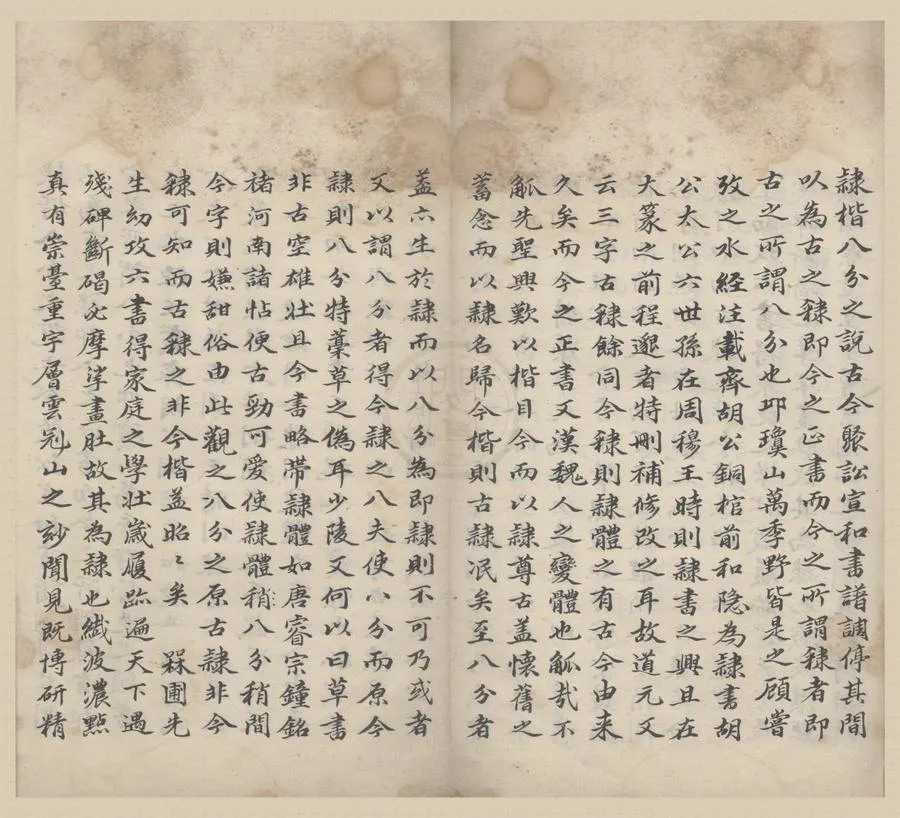 隷楷八分之說古今聚訟宣和書譜調停其間
以為古之隸即今之正書而今之所謂隸者即
古之所謂八分也邛瓊山萬季野皆是之顧嘗
攷之水經注載齊胡公銅棺前和隐為隷書胡
公太公六世孫在周穆王時則隷書之興且在
大篆之前程邈者特刪補修改之耳故道元又
云三字古隸餘同今隸則隷體之有古今由来
久矣而今之正書又漢魏人之變體也觚哉不
觚先聖興歎以楷目今而以隷尊古盖懷舊之
蓄念而以隷名歸今楷則古隷泯矣至八分者
盖亦生於隷而以八分為即隷則不可乃或者
又以謂八分者得今隷之八夫使八分而原今
隷則八分特藁草之偽耳少陵又何以曰草書
非古空雄壮且今書略帶隷體如唐睿宗鐘銘
褚河南諸帖便古勁可愛使隷體稍八分稍間
今字則嫌甜俗由此觀之八分之原古隷非今
隸可知而古隸之非今楷盖昭〻矣 槑圃先
生幼攷六書得家庭之學壮嵗履跡遍天下遇
殘碑斷碣必摩挲畫肚故其為隷也纎波濃㸃
真有崇臺重宇層雲冠山之妙聞見既博研精